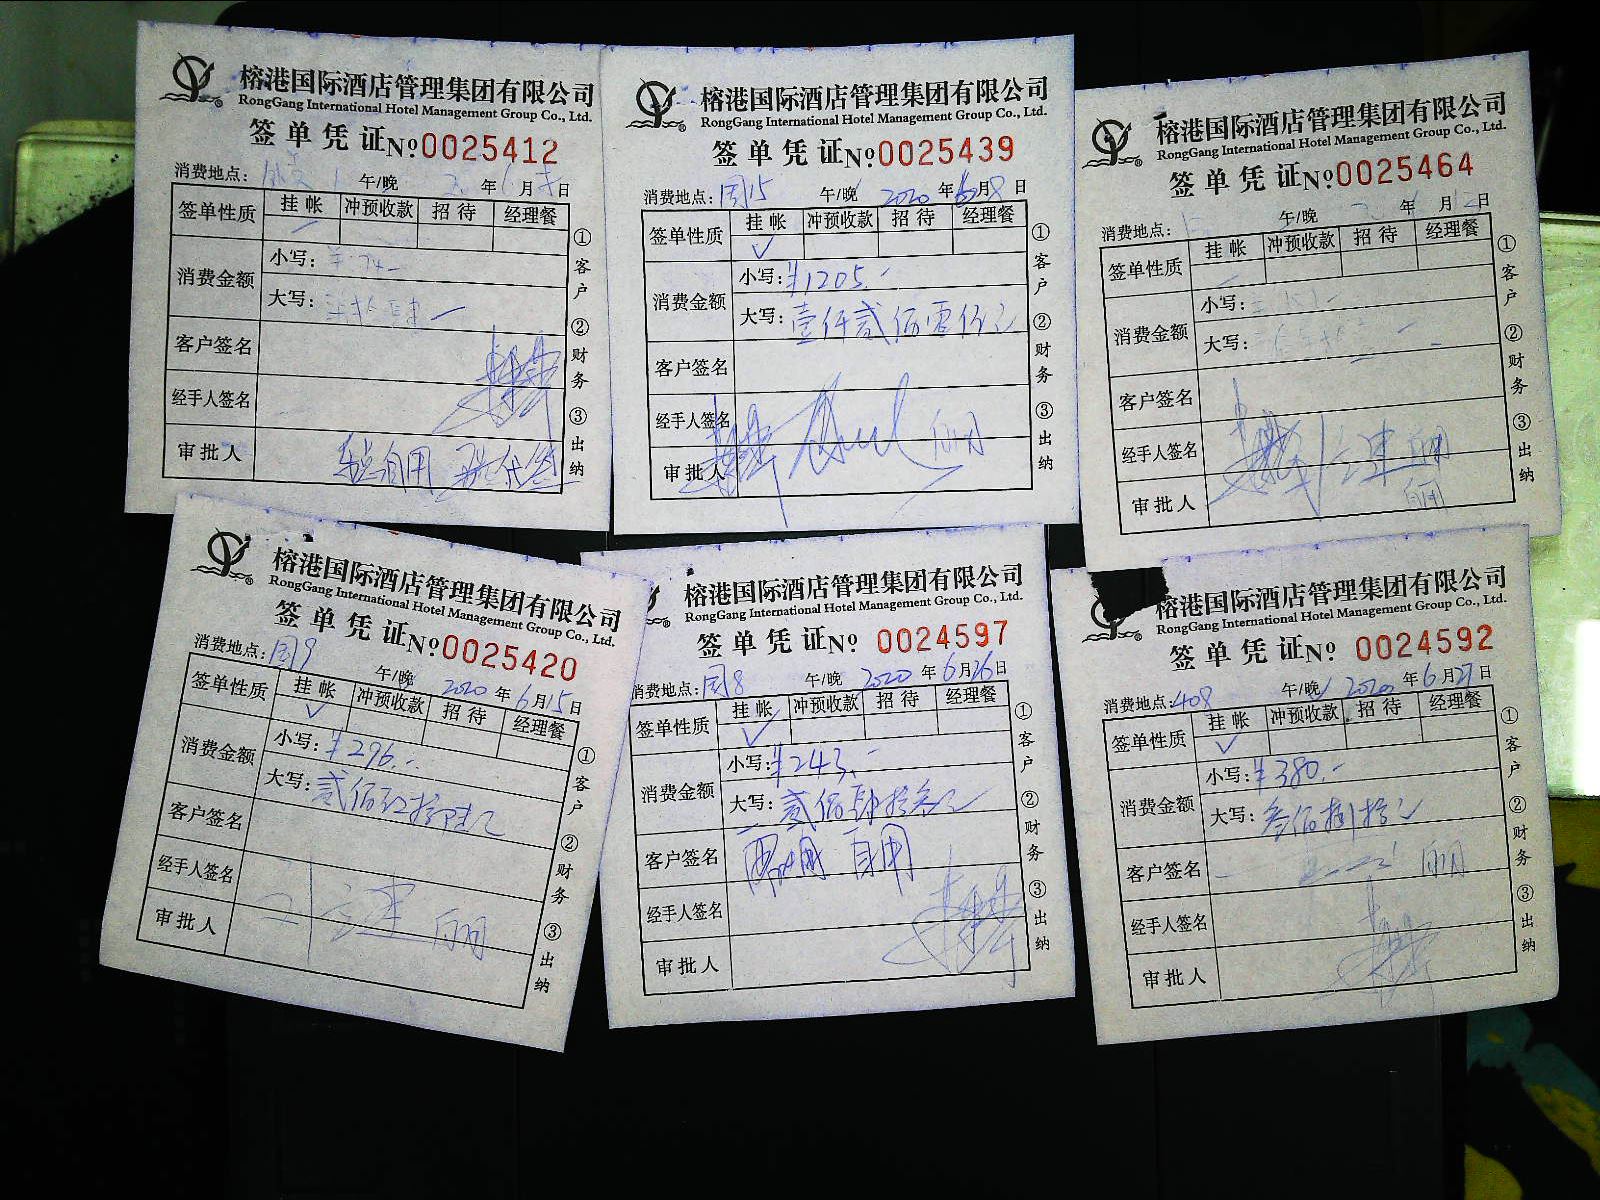 榕港国际酒店管理集团有限公司
RongGang International Hotel Management Group Co., Ltd.
签单凭证 No 0025412
消费地点： 午/晚 年 6 月 日
签单性质 挂帐 冲预收款 招待 经理餐
消费金额 小写：¥74.-
大写：柒拾肆
客户签名
经手人签名
审批人 自用 代签
① 客户 ② 财务 ③ 出纳
榕港国际酒店管理集团有限公司
RongGang International Hotel Management Group Co., Ltd.
签单凭证 No 0025439
消费地点：周15 午/晚 2020 年 6 月 8 日
签单性质 挂帐 冲预收款 招待 经理餐
✓
消费金额 小写：¥1205.-
大写：壹仟贰佰零伍元
客户签名
经手人签名 自用
审批人
① 客户 ② 财务 ③ 出纳
榕港国际酒店管理集团有限公司
RongGang International Hotel Management Group Co., Ltd.
签单凭证 No 0025464
消费地点： 午/晚 年 月 日
签单性质 挂帐 冲预收款 招待 经理餐
消费金额 小写：
大写：
客户签名
经手人签名 自用
审批人 自用
① 客户 ② 财务 ③ 出纳
榕港国际酒店管理集团有限公司
RongGang International Hotel Management Group Co., Ltd.
签单凭证 No 0025420
消费地点：周9 午/晚 2020 年 6 月 15 日
签单性质 挂帐 冲预收款 招待 经理餐
✓
消费金额 小写：¥296.-
大写：贰佰玖拾陆元
客户签名
经手人签名
审批人 自用
① 客户 ② 财务 ③ 出纳
榕港国际酒店管理集团有限公司
RongGang International Hotel Management Group Co., Ltd.
签单凭证 No 0024597
消费地点：周8 午/晚 2020 年 6 月 26 日
签单性质 挂帐 冲预收款 招待 经理餐
✓
消费金额 小写：¥243.-
大写：贰佰肆拾叁元
客户签名 自用
经手人签名
审批人
① 客户 ② 财务 ③ 出纳
榕港国际酒店管理集团有限公司
RongGang International Hotel Management Group Co., Ltd.
签单凭证 No 0024592
消费地点：408 午/晚 2020 年 6 月 27 日
签单性质 挂帐 冲预收款 招待 经理餐
✓
消费金额 小写：¥380.-
大写：叁佰捌拾元
客户签名 自用
经手人签名
审批人
① 客户 ② 财务 ③ 出纳